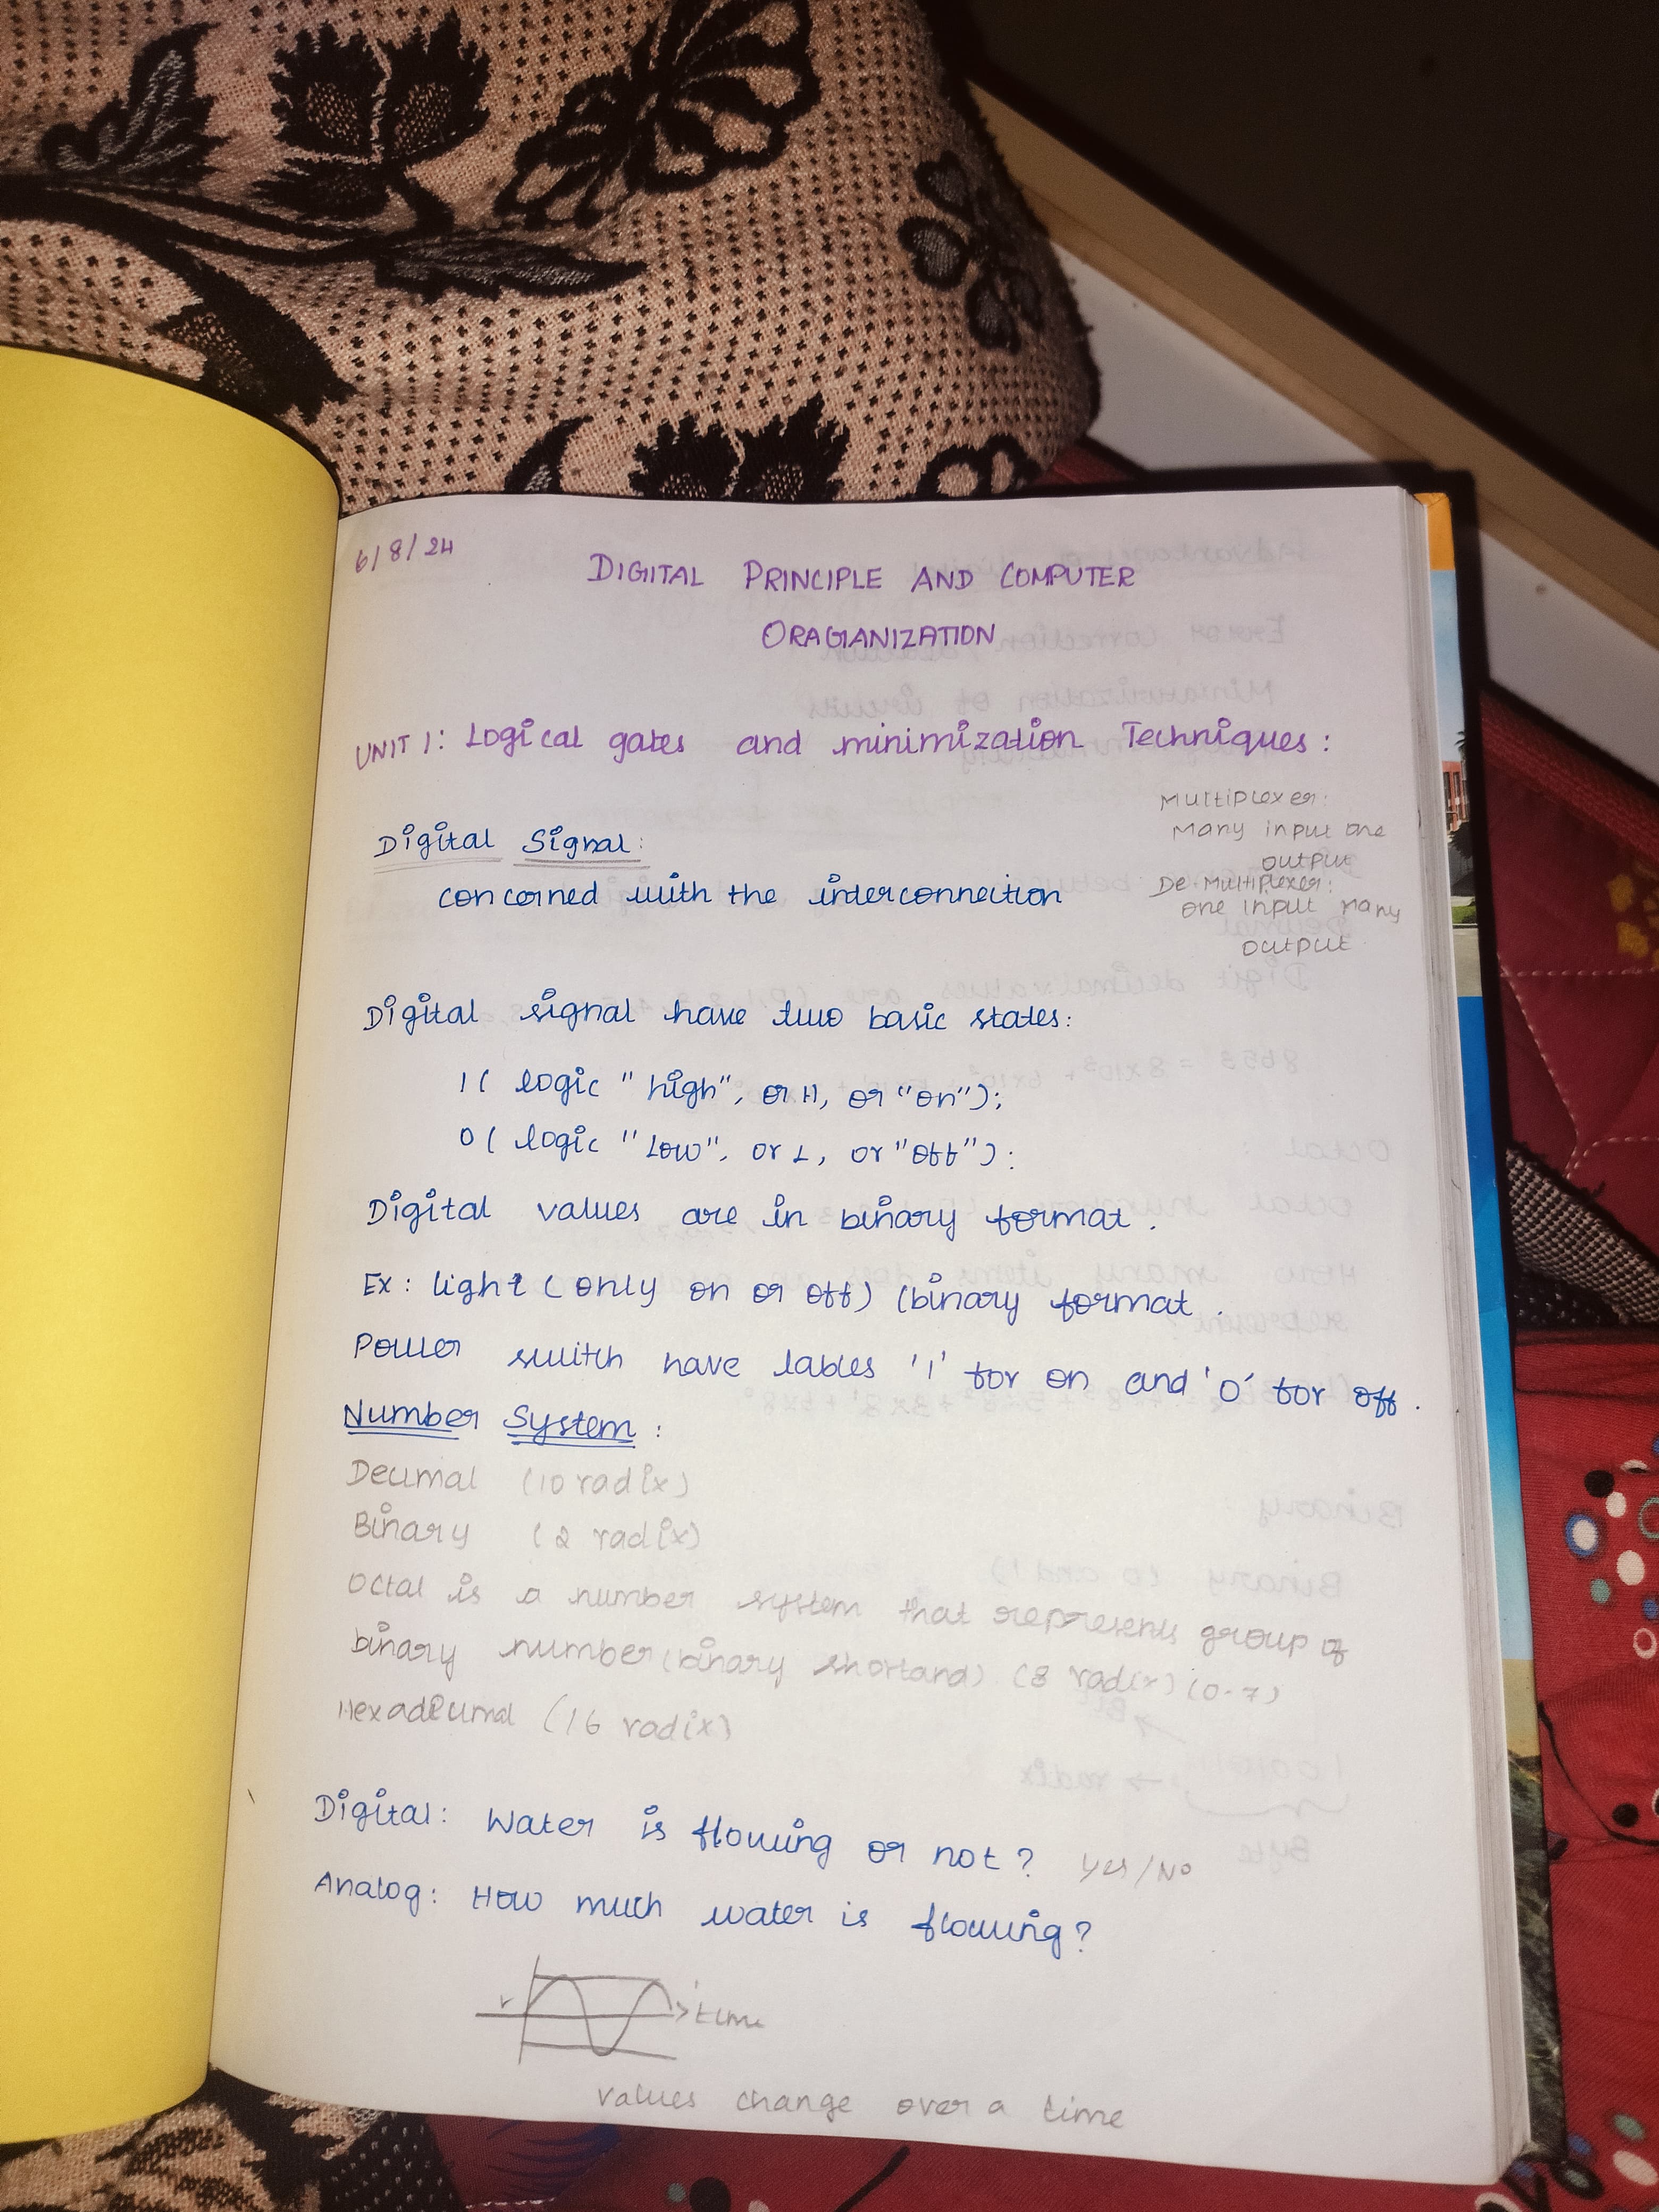 6/8/24
DIGITAL PRINCIPLE AND COMPUTER
ORAGANIZATION
UNIT 1: Logical gates and minimization Techniques:
Multiplexer:
Many input one
output
De Multiplexer:
one input many
output
Digital Signal:
concerned with the interconnection
Digital signal have two basic states:
1( logic "high", or H, or "on");
0( logic "Low", or L, or "off"):
Digital values are in binary format.
Ex: light (only on or off) (binary format.
Power switch have lables '1' for on and '0' for off.
Number System:
Decimal (10 radix)
Binary (2 radix)
Octal is a number system that represents group of
binary number (binary shortand) (8 radix) (0-7)
Hexadecimal (16 radix)
Digital: Water is flowing or not? Yes/No
Analog: How much water is flowing?
v
time
values change over a time